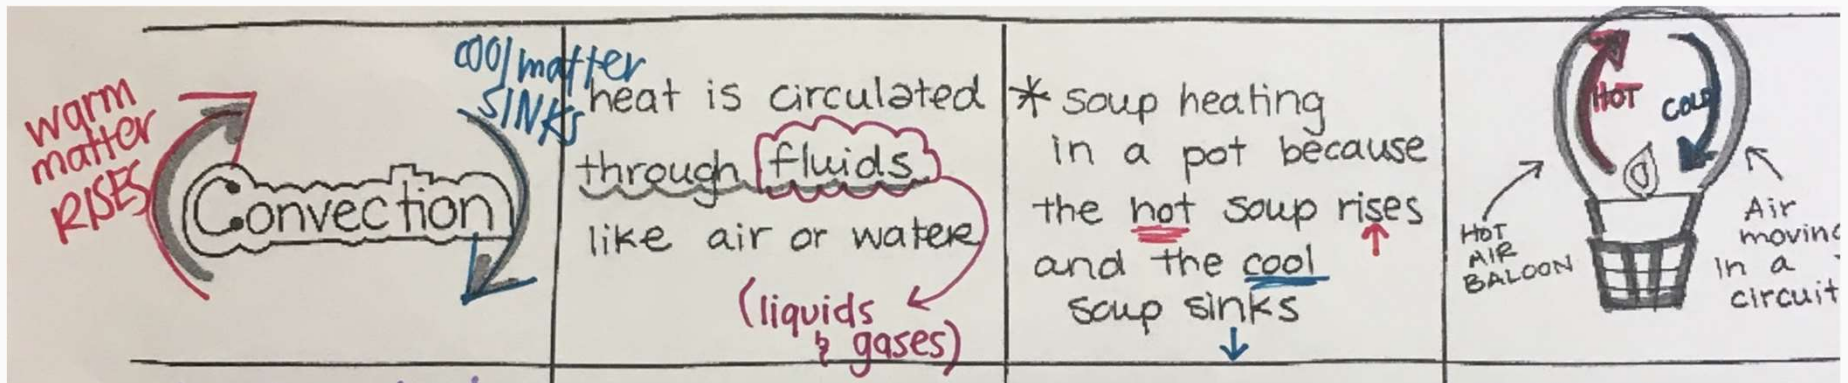 warm
matter
RISES
Convection
cool matter
SINKS
heat is circulated
through fluids
like air or water
(liquids
& gases)
* soup heating
in a pot because
the hot soup rises
and the cool
soup sinks
HOT
COLD
HOT
AIR
BALOON
Air
moving
in a
circuit